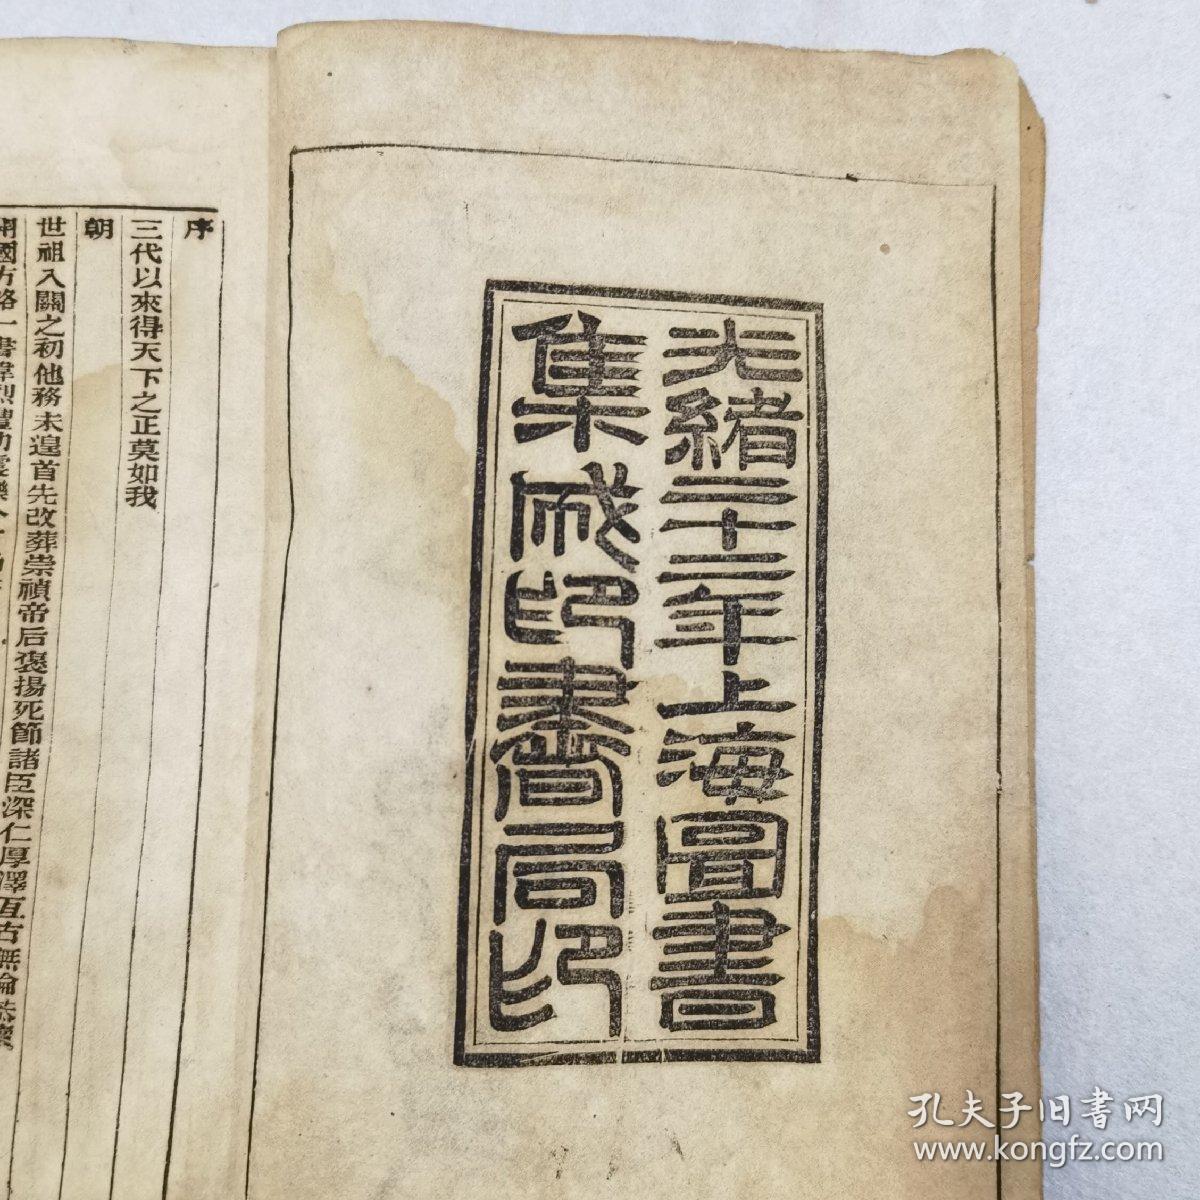 光緒二十二年上海圖書
集成印書局印
序
三代以來得天下之正莫如我
朝
世祖入關之初他務未遑首先改葬崇禎帝后褒揚死節諸臣深仁厚澤亙古無倫恭讀
開國方略一書
孔夫子旧書网
www.kongfz.com